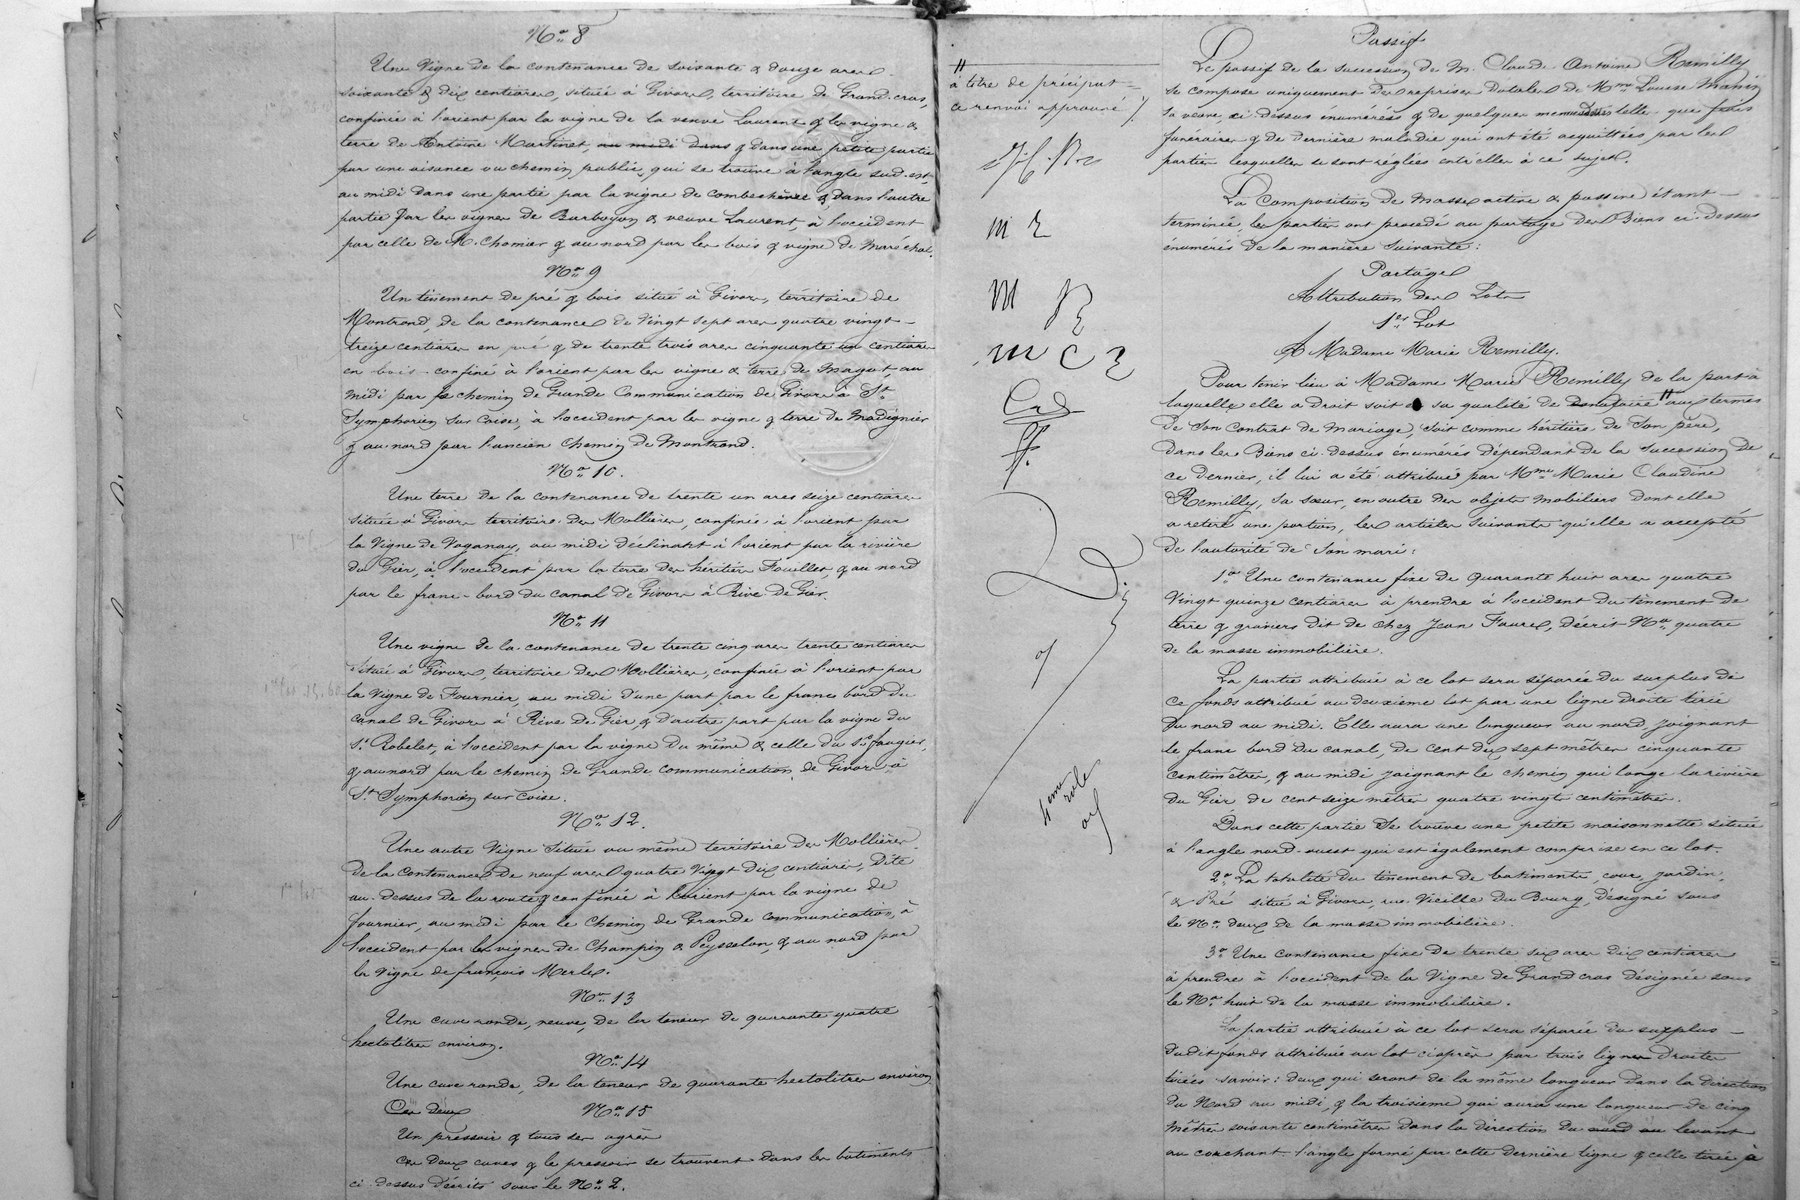 No 8
Une Vigne de la contenance de soixante & douze ares
soixante & dix centiares, située à Givors, territoire de Grand-cras,
confinée à l'orient par la vigne de la veuve Laurent & les vigne &
terre de Antoine Martinet, au midi dans & dans une petite partie
par une aisance ou chemin public, qui se trouve à l'angle sud-est,
au midi dans une partie par la vigne de combechèvre & dans l'autre
partie par les vignes de Barboyon & veuve Laurent, à l'occident
par celle de M. Chomier & au nord par les bois & vigne de Maréchal.
No 9
Un tènement de pré & bois situé à Givors, territoire de
Montrond, de la contenance de vingt sept ares quatre vingt
treize centiares en pré & de trente trois ares cinquante un centiares
en bois confiné à l'orient par les vigne & terre de Magat, au
midi par le chemin de Grande Communication de Givors à St
Symphorien sur Coise, à l'occident par les vigne & terre de Madignier
& au nord par l'ancien chemin de Montrond.
No 10.
Une terre de la contenance de trente un ares seize centiares
située à Givors territoire des Mollières, confinée à l'orient par
la Vigne de Voganay, au midi déclinant à l'orient par la rivière
du Gier, à l'occident par la terre des héritiers Fouillet, & au nord
par le franc-bord du canal de Givors à Rive de Gier.
No 11
Une vigne de la contenance de trente cinq ares trente centiares
située à Givors, territoire des Mollières, confinée à l'orient par
la Vigne de Fournier, au midi d'une part par le franc bord du
canal de Givors à Rive de Gier & d'autre part par la vigne du
Sr Robelet, à l'occident par la vigne du même & celle du Sr faugier,
& au nord par le chemin de Grande communication de Givors à
St Symphorien sur Coise.
No 12.
Une autre Vigne située au même territoire des Mollières
de la contenance de neuf ares quatre Vingt dix centiares, dite
au dessus de la route & confinée à l'orient par la vigne de
fournier, au midi par le chemin de Grande communication, à
l'occident par les vignes de Champin & Peysselon, & au nord par
la vigne de françois Merle.
No 13
Une cuve ronde, neuve, de la teneur de quarante quatre
hectolitres environ.
No 14
Une cuve ronde, de la teneur de quarante hectolitres environ
Ces deux No 15
Un pressoir & tous ses agrès
Ces deux cuves & le pressoir se trouvent dans les batiments
ci-dessus décrits sous le No 2.
"
à titre de préciput
ce renvoi approuvé
M R
M R
M C R
4eme
role
Passif
Le passif de la succession de M. Claude Antoine Remilly
se compose uniquement des reprises dotales de Mme Louise Manin
sa veuve ci dessus énumérées & de quelques menues dettes telle que frais
funéraires & de dernière maladie qui ont été acquittées par les
parties lesquelles se sont réglées entr'elles à ce sujet.
La Composition des Masses active & passive étant
terminée, les parties ont procédé au partage des Biens ci-dessus
énumérés de la manière suivante:
Partage
Attribution des Lots
1er Lot
A Madame Marie Remilly.
Pour tenir lieu à Madame Marie Remilly de la part à
laquelle elle a Droit soit sa qualité de Donataire " aux termes
de son contrat de mariage, soit comme héritière de son père,
dans les Biens ci-dessus énumérés dépendant de la succession de
ce dernier, il lui a été attribué par Mme Marie Claudine
Remilly, sa sœur, en outre des objets mobiliers dont elle
a retiré une portion, les articles suivants qu'elle a accepté
de l'autorité de son mari:
1o Une contenance fixe de quarante huit ares quatre
vingt quinze centiares à prendre à l'occident du tènement de
terre & graviers dit de chez Jean Faure, décrit No quatre
de la masse immobilière.
La partie attribuée à ce lot sera séparée du surplus de
ce fonds attribué au deuxième lot par une ligne droite tirée
du nord au midi. Elle aura une longueur au nord, joignant
le franc bord du canal, de cent dix sept mètres cinquante
centimètres, & au midi joignant le chemin qui longe la rivière
du Gier de cent seize mètres quatre vingts centimètres.
Dans cette partie se trouve une petite maisonnette située
à l'angle nord-ouest qui est également comprise en ce lot.
2o La totalité du tènement de batiments, cour, jardin,
& Pré situé à Givors, rue Vieille du Bourg, désigné sous
le No deux de la masse immobilière.
3o Une contenance fixe de trente six ares dix centiares
à prendre à l'occident de la Vigne de Grand cras désignée sous
le No huit de la masse immobilière.
La partie attribuée à ce lot sera séparée du surplus
dudit fonds attribué au lot ci après par trois lignes droites
tirées savoir: deux qui seront de la même longueur dans la direction
du Nord au midi, & la troisieme qui aura une longueur de cinq
mètres soixante centimètres dans la direction du nord au levant
au couchant l'angle formé par cette dernière ligne & celle tirée à